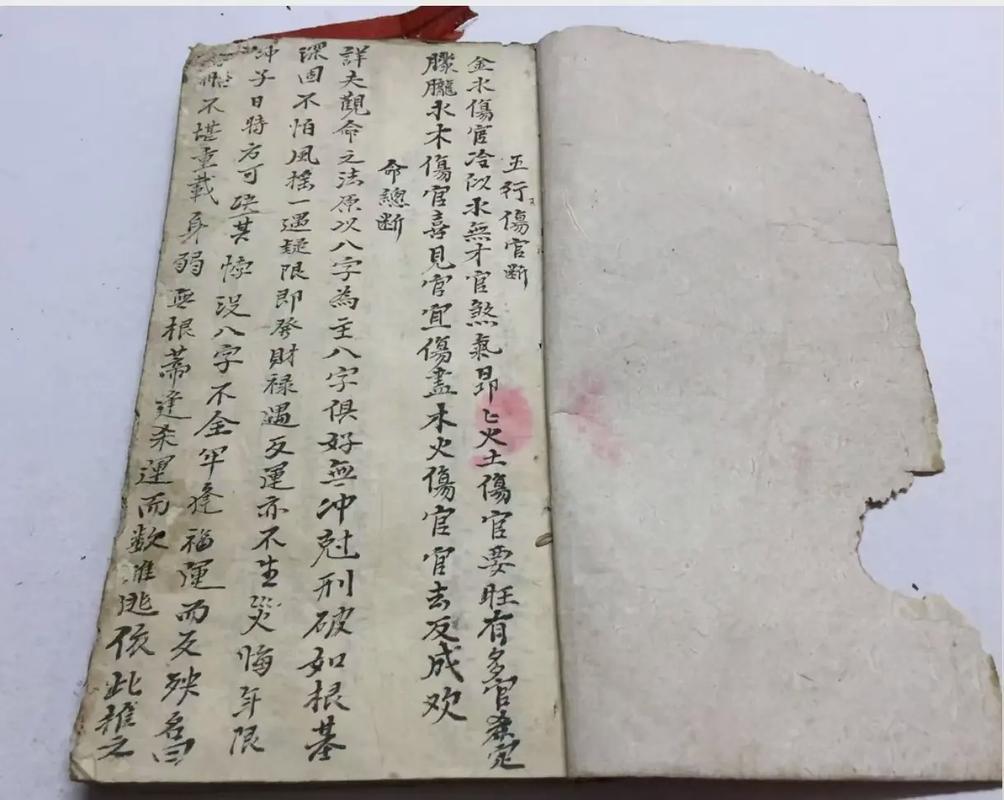 五行傷官断
金水傷官冷似水無才官煞氣昻〻火土傷官要旺有多官煞定
朦朧水木傷官喜見官宜傷盡木火傷官官去反成欢
命總断
詳夫觀命之法原以八字為主八字俱好無冲尅刑破如根基
深固不怕風揺一遇疑限即發財禄遇反運亦不生災悔年限
冲子日時方可 其 况八字不全年逢福運而反殃名曰
不堪重載身弱無根蒂逢杀運而数難逃依此推之